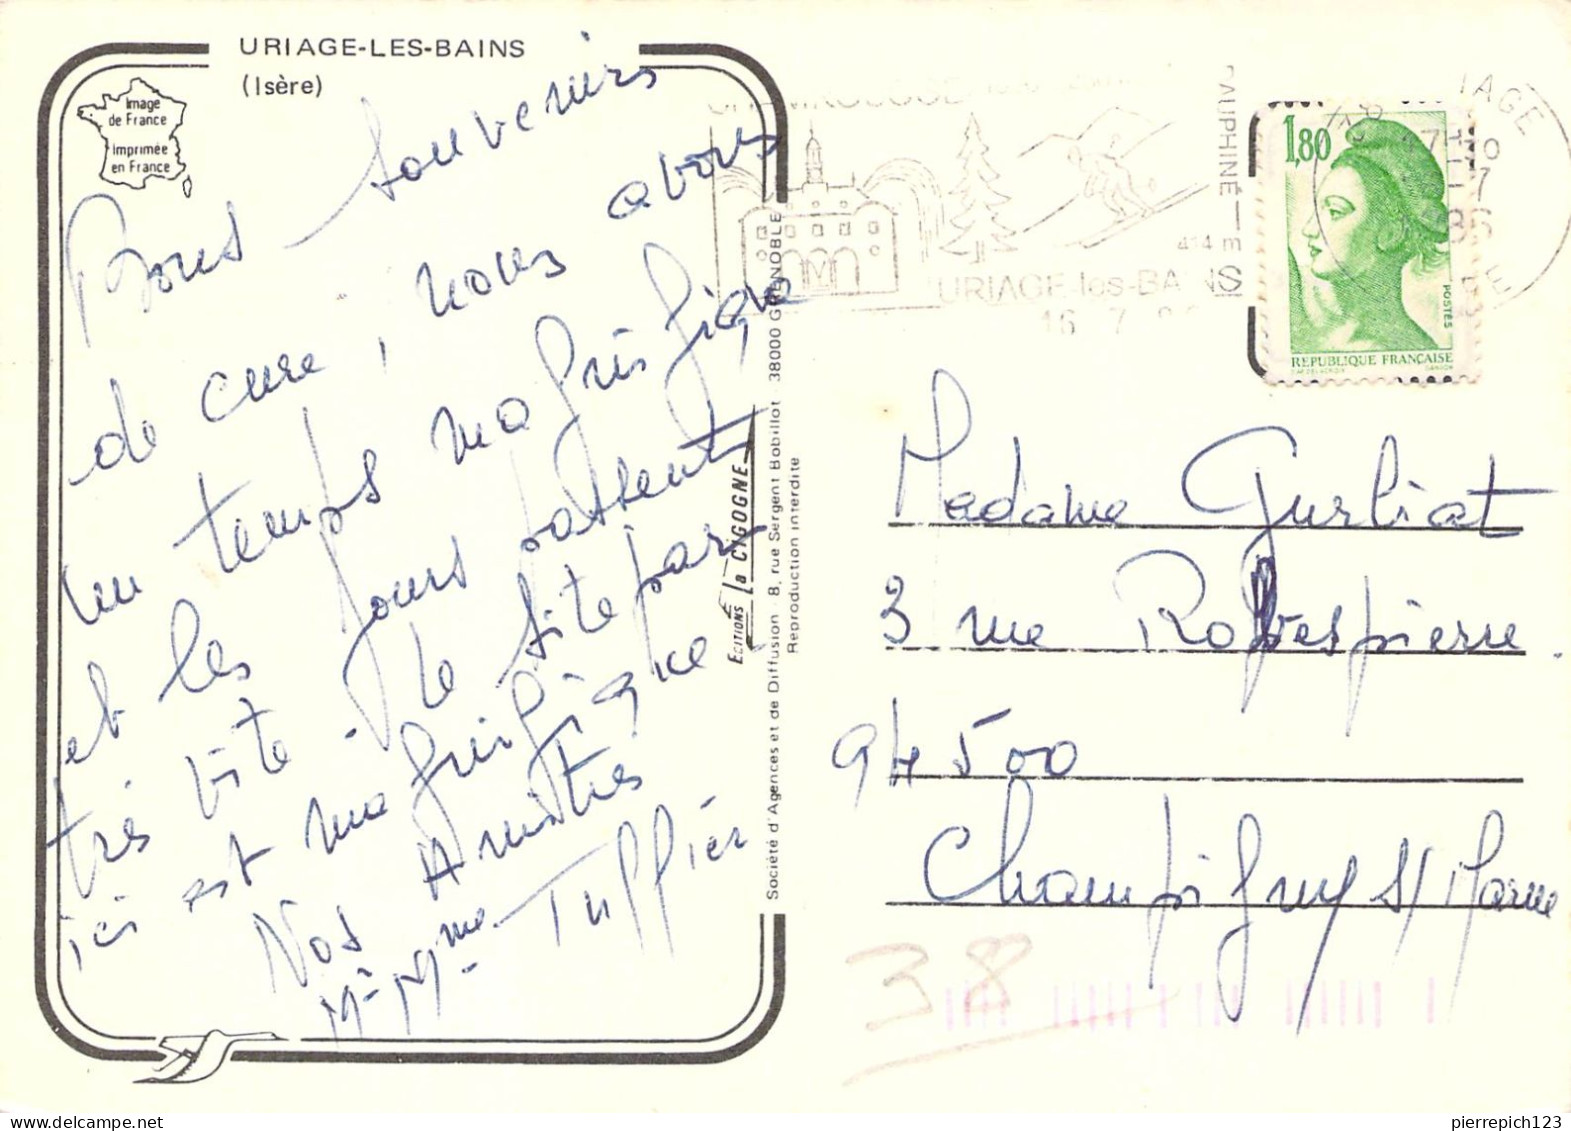 URIAGE-LES-BAINS
(Isère)
Image
de France
Imprimée
en France
Bons souvenirs
de cure, nous avons
un temps magnifique
et les jours passent
très vite. le site par
ici est magnifique.
Nos Amitiés
Mr Mme Tuffier
EDITIONS la CIGOGNE
Société d'Agences et de Diffusion 8, rue Sergent Bobillot 38000 GRENOBLE
Reproduction interdite
DAUPHINÉ
414 m
URIAGE-les-BAINS
16 7
IAGE
1,80
POSTES
REPUBLIQUE FRANÇAISE
Madame Gurliat
3 rue Robespierre.
94500
Champigny s/ Marne
38
pierrepich123